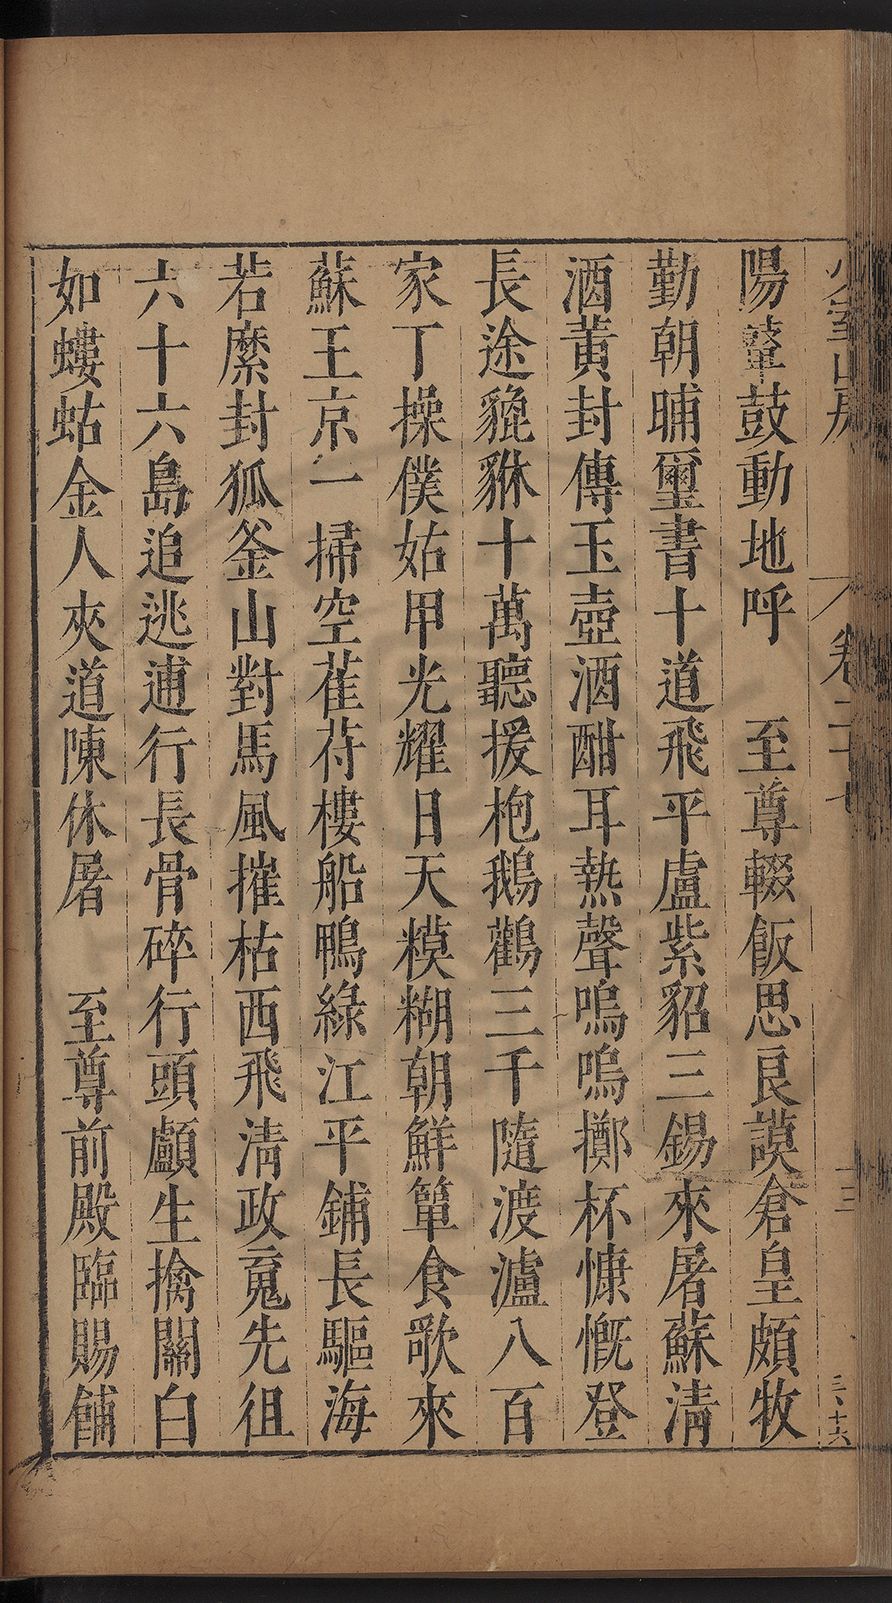 陽鼙鼓動地呼　至尊輟飯思良謨倉皇頗牧
勤朝晡璽書十道飛平盧紫貂三錫來屠蘇清
酒黃封傳玉壺酒酣耳熱聲嗚嗚擲杯慷慨登
長途貔貅十萬聽援枹鵝鸛三千隨渡瀘八百
家丁操僕姑甲光耀日天糢糊朝鮮簞食歌來
蘇王京一掃空萑苻樓船鴨綠江平鋪長驅海
若縻封狐釜山對馬風摧枯西飛淸政䰟先徂
六十六島追逃逋行長骨碎行頭顱生擒關白
如螻蛄金人夾道陳休屠　至尊前殿臨賜餔